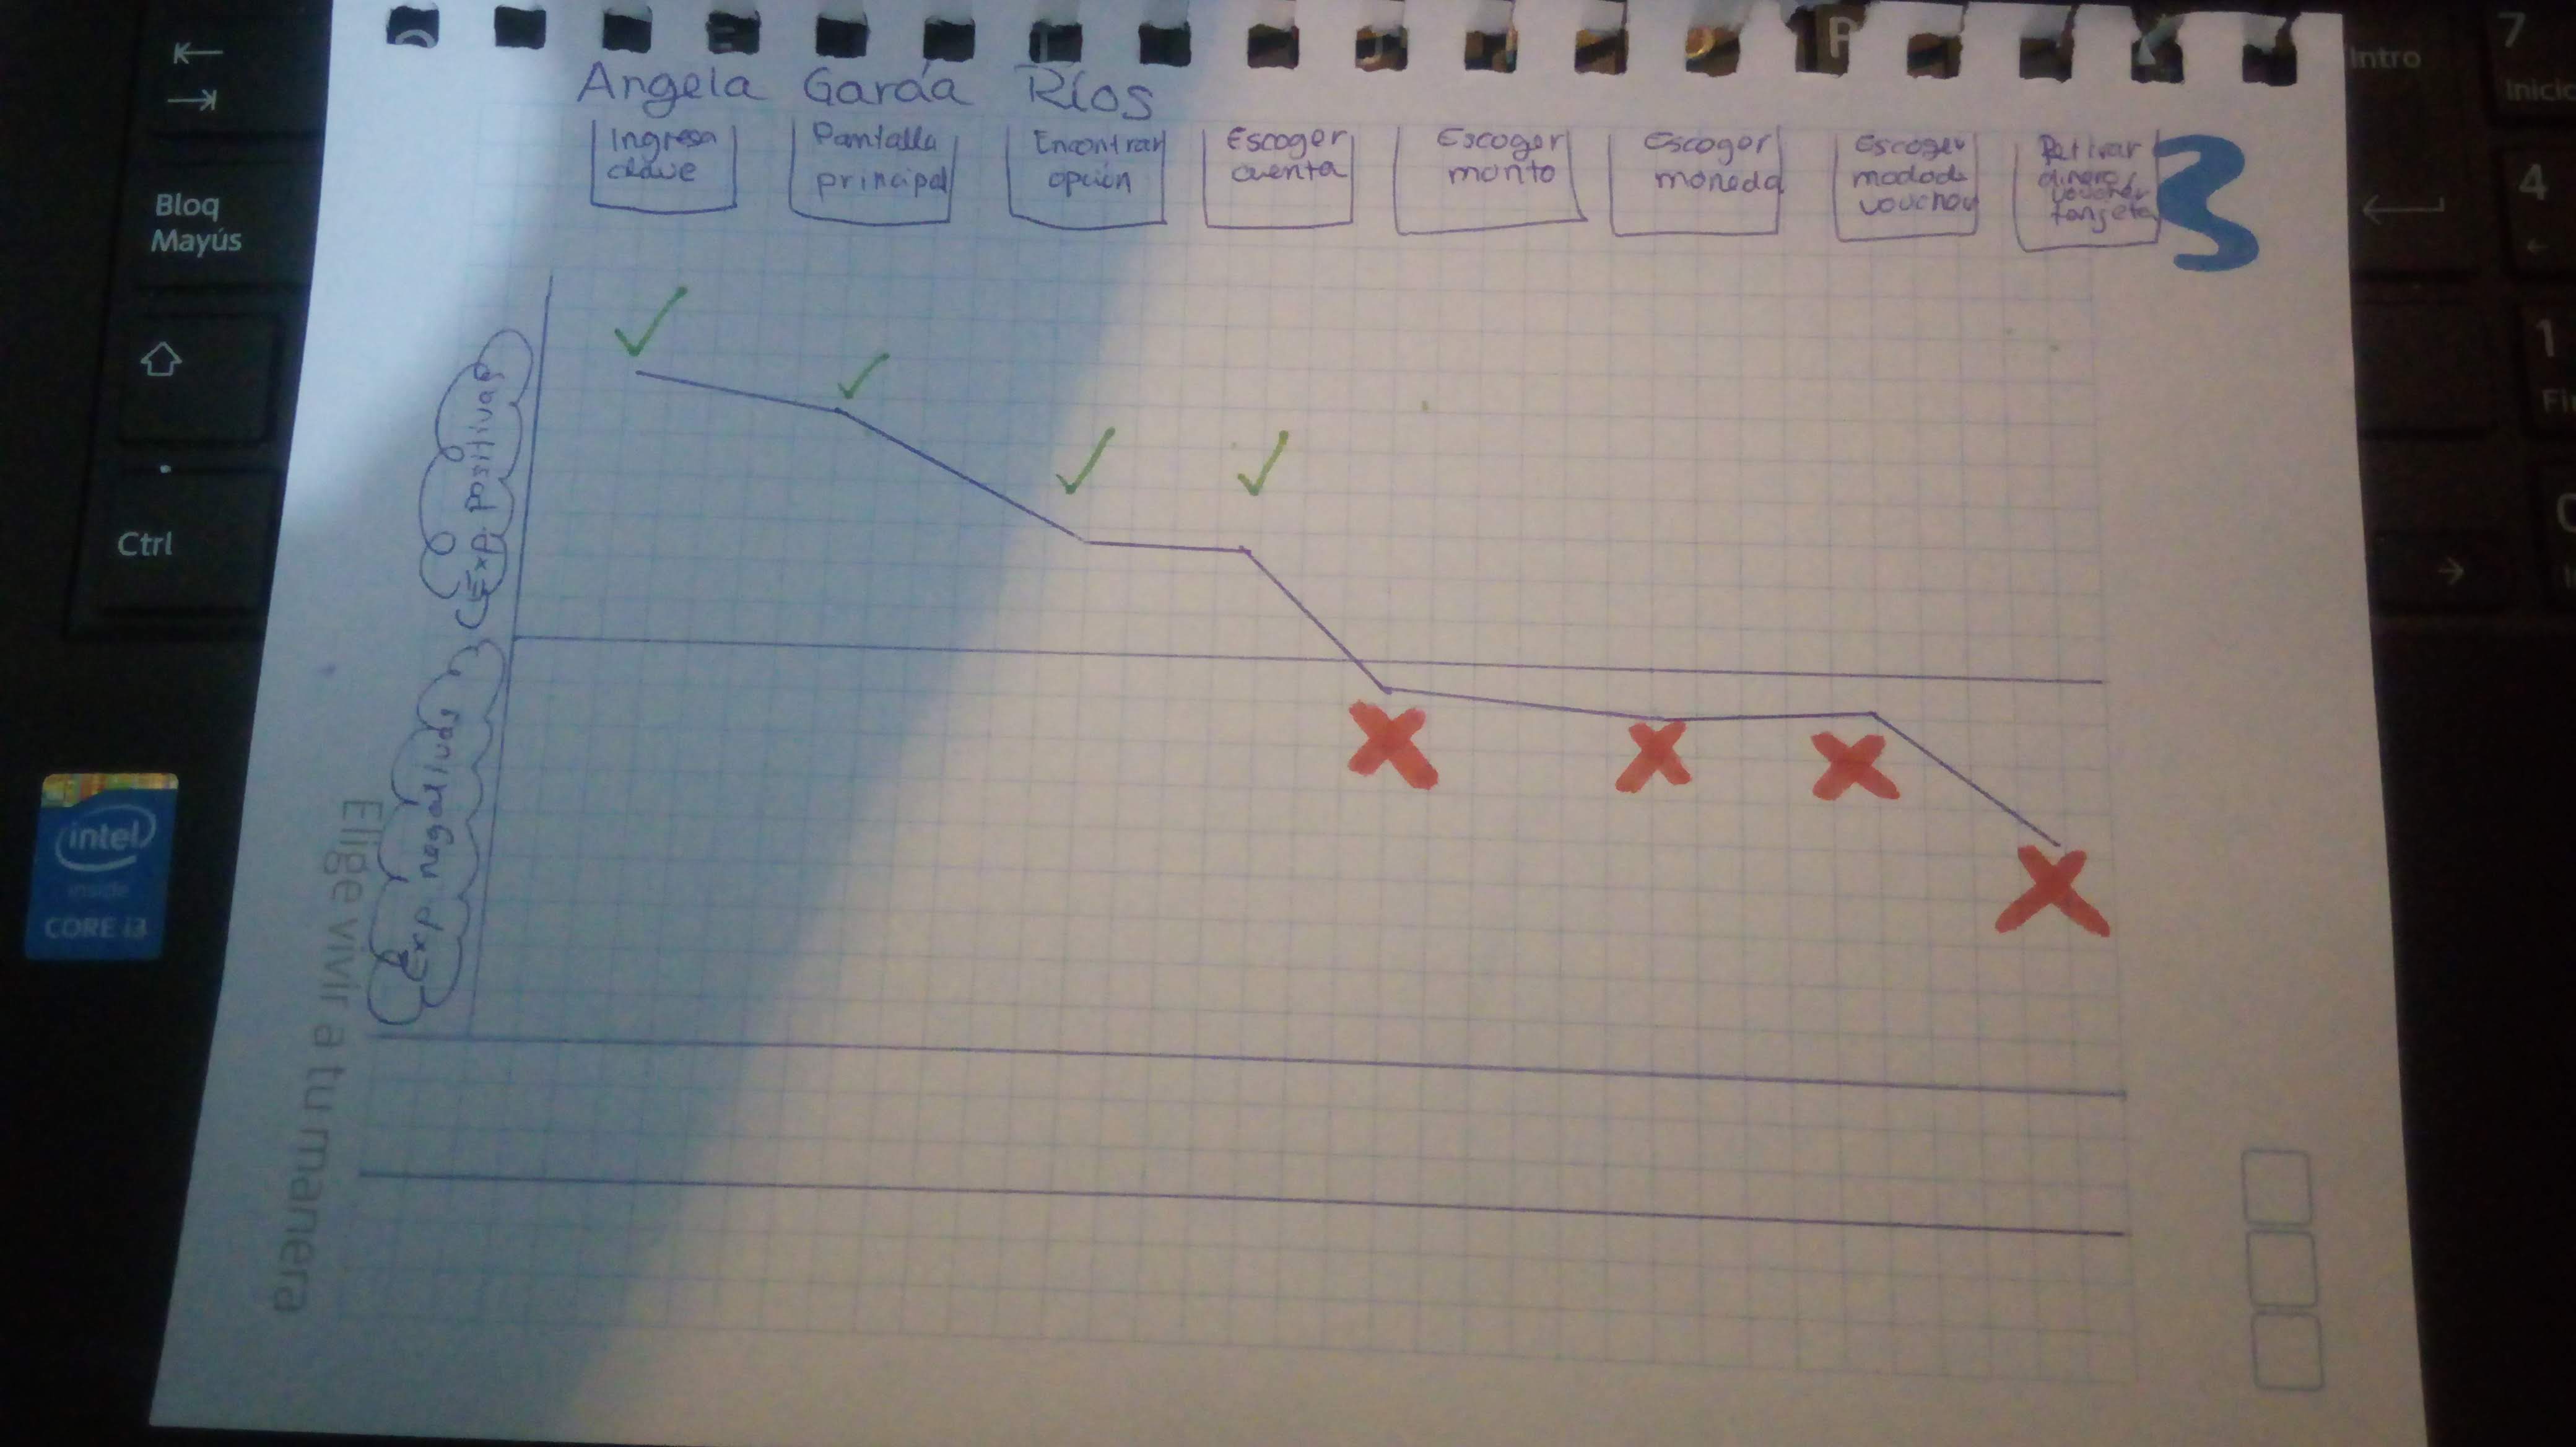 Angela García Ríos
Ingresa
clave
Pantalla
principal
Encontrar
opción
Escoger
cuenta
Escoger
monto
Escoger
moneda
Escoger
modo de
voucher
Retirar
dinero/
voucher
tarjeta
3
Exp. positivas
Exp negativas
Elige vivir a tu manera
Bloq
Mayús
Ctrl
intel
inside
CORE i3
P
Intro
7
Inicio
4
1